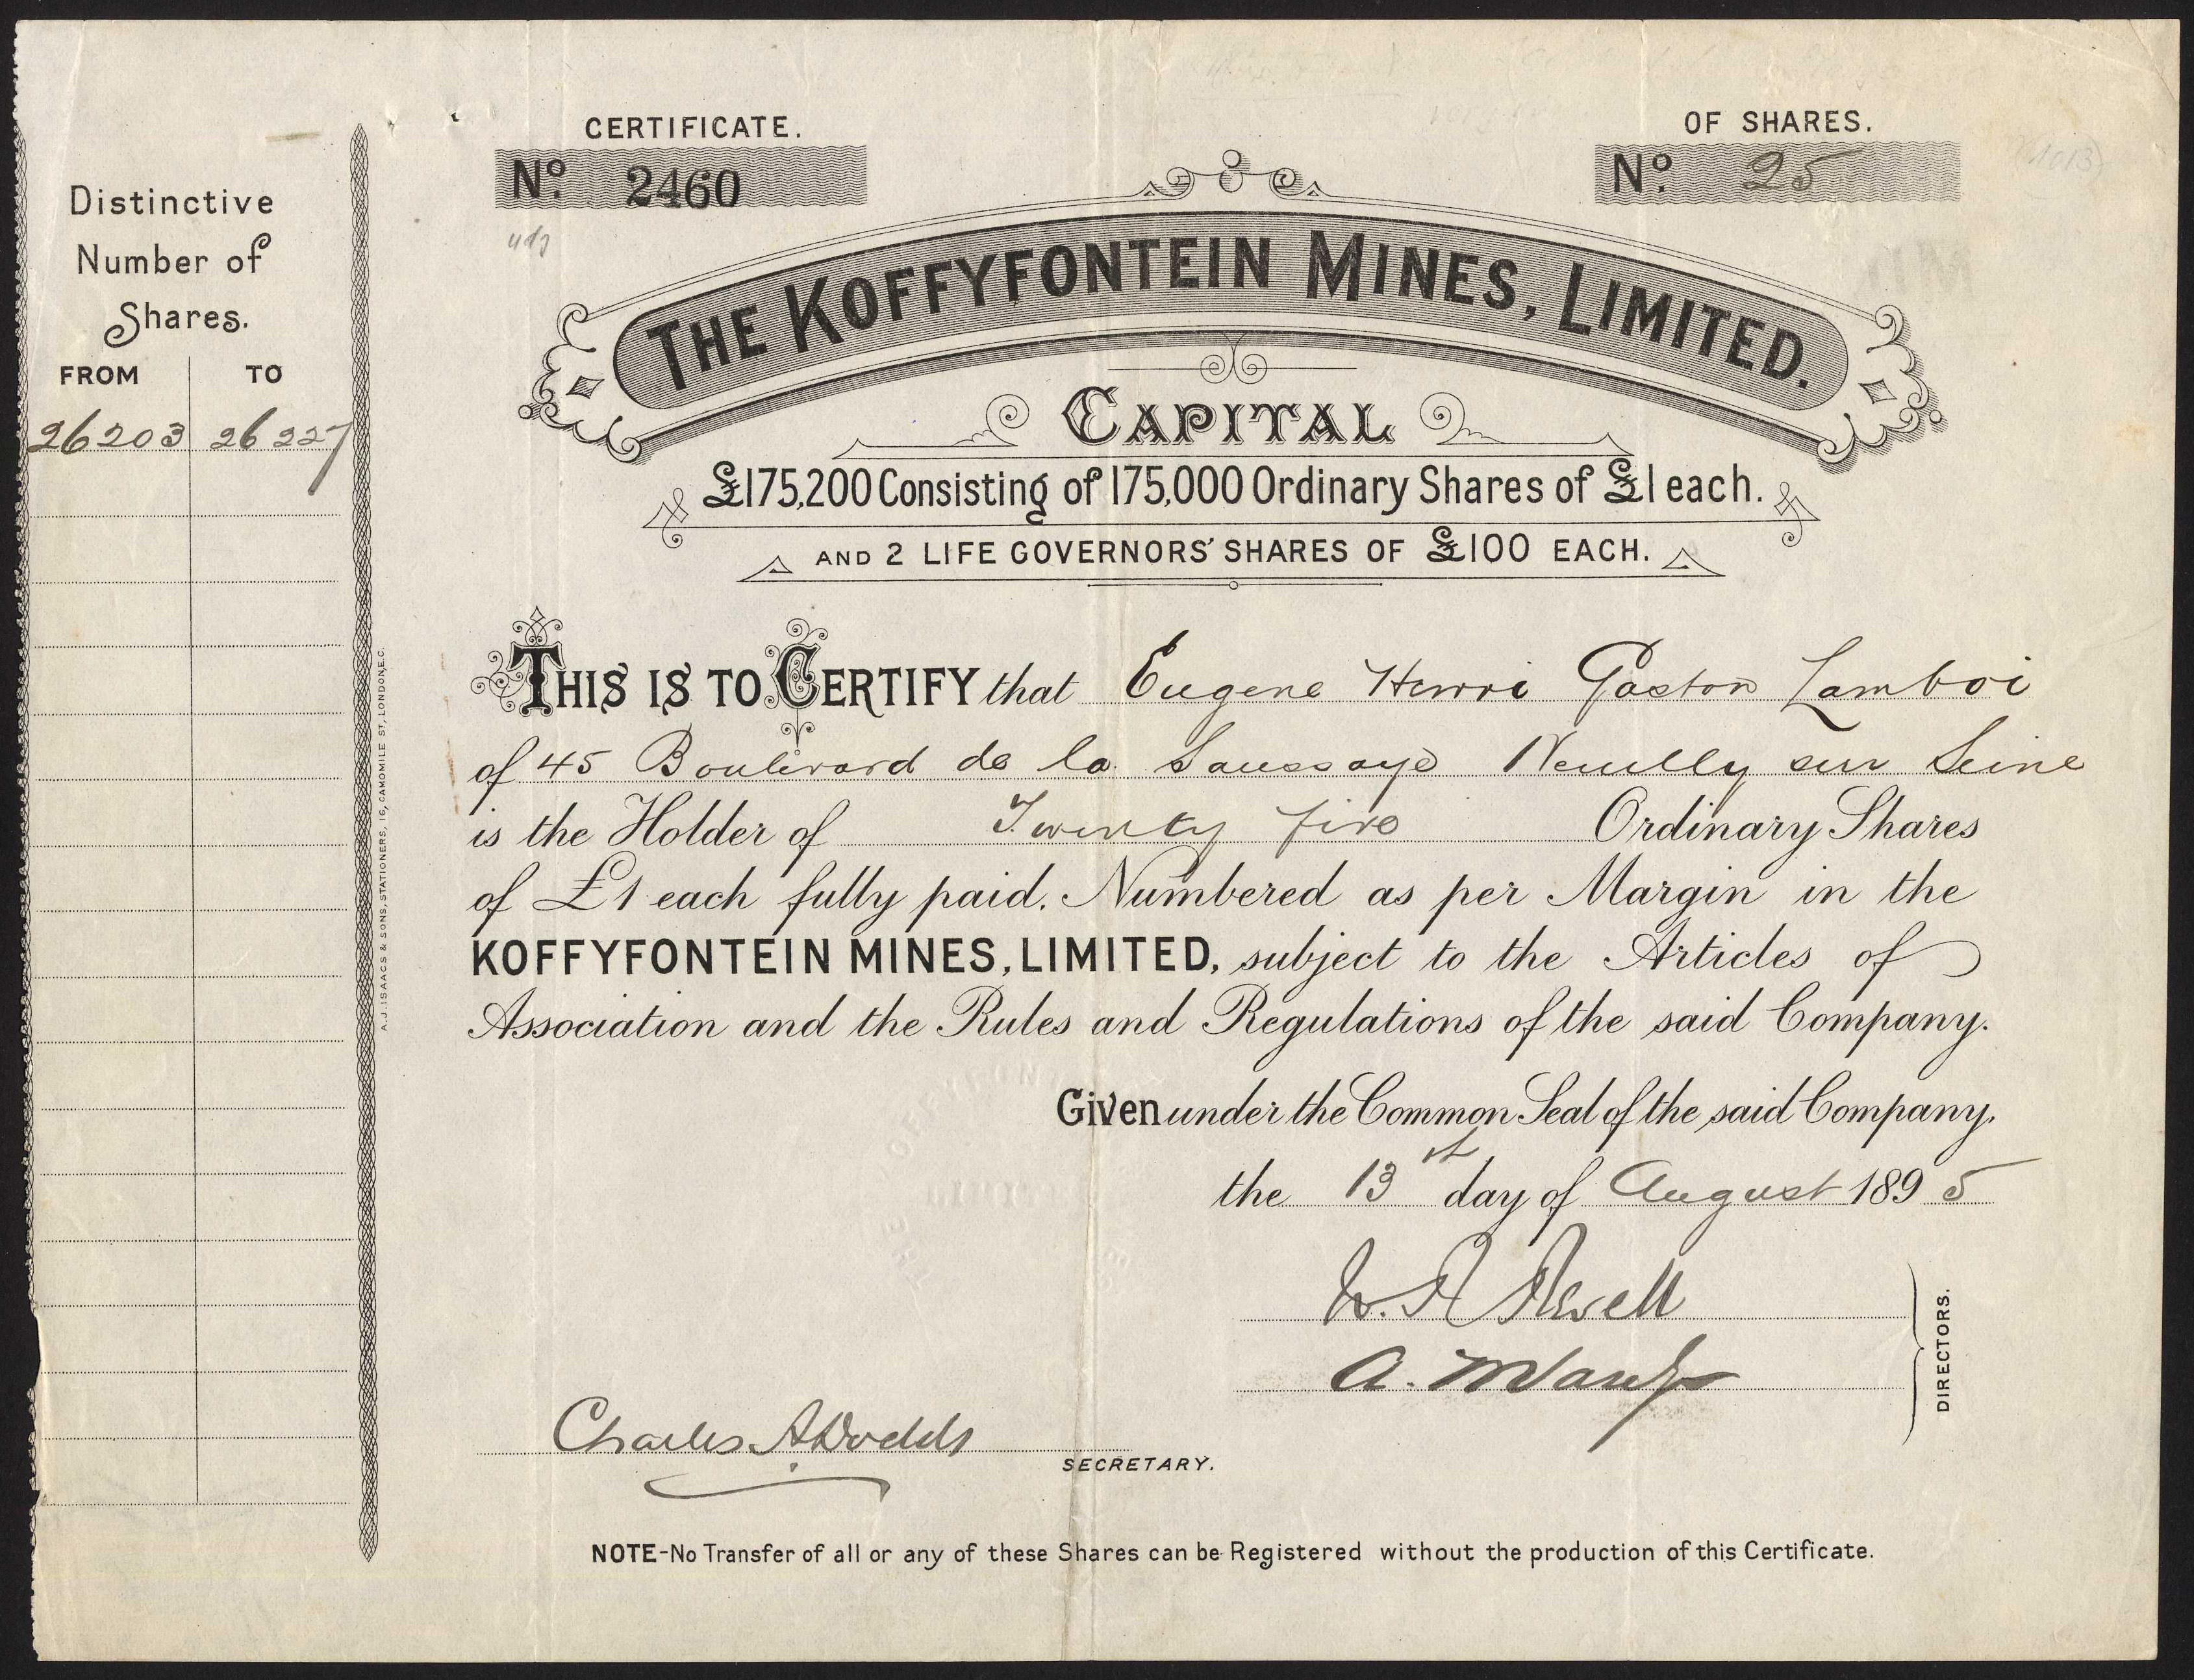 CERTIFICATE.
Nº. 2460
OF SHARES.
Nº. 25
THE KOFFYFONTEIN MINES, LIMITED.
CAPITAL
£175,200 Consisting of 175,000 Ordinary Shares of £1 each.
AND 2 LIFE GOVERNORS' SHARES OF £100 EACH.
Distinctive
Number of
Shares.
FROM TO
26203 26227
THIS IS TO CERTIFY that Eugene Henri Gaston Lamboi
of 45 Boulevard de la Saussaye Neuilly sur Seine
is the Holder of Twenty five Ordinary Shares
of £1 each fully paid. Numbered as per Margin in the
KOFFYFONTEIN MINES, LIMITED, subject to the Articles of
Association and the Rules and Regulations of the said Company.
Given under the Common Seal of the said Company,
the 13th day of August 1895
DIRECTORS.
Charles A Dodds
SECRETARY.
NOTE-No Transfer of all or any of these Shares can be Registered without the production of this Certificate.
A.J. ISAACS & SONS, STATIONERS, 16, CAMOMILE ST, LONDON, E.C.